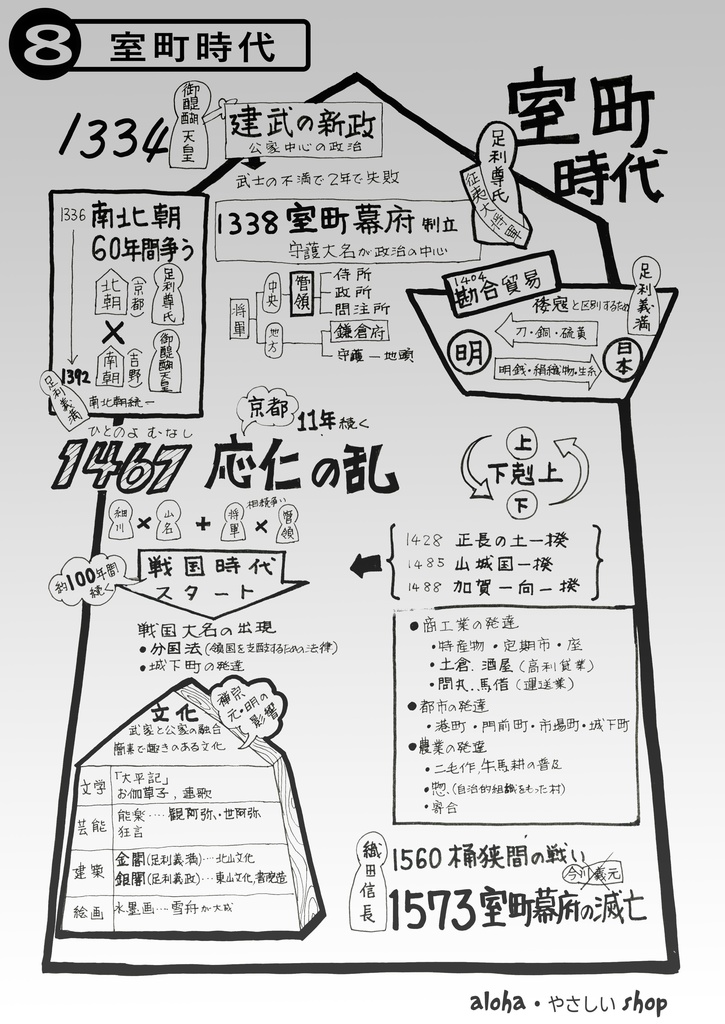 8 室町時代
室町
時代
1334
御醍醐天皇
建武の新政
公家中心の政治
武士の不満で2年で失敗
足利尊氏
征夷大将軍
1338 室町幕府 制立
守護大名が政治の中心
将軍
中央
管領
侍所
政所
問注所
地方
鎌倉府
守護ー地頭
1336 南北朝
60年間争う
北朝
京都
足利尊氏
×
南朝
吉野
御醍醐天皇
1392
足利義満
南北朝統一
1404
勘合貿易
足利義満
倭寇と区別するため
刀・銅・硫黄
明
日本
明銭・絹織物・生糸
ひとのよ むなし
京都
11年続く
1467 応仁の乱
細川 × 山名 + 将軍 × 管領
相続争い
上
下剋上
下
約100年間続く
戦国時代
スタート
1428 正長の土一揆
1485 山城国一揆
1488 加賀一向一揆
戦国大名の出現
●分国法(領国を支配するための法律)
●城下町の発達
●商工業の発達
・特産物・定期市・座
・土倉、酒屋(高利貸業)
・問丸、馬借(運送業)
●都市の発達
・港町・門前町・市場町・城下町
●農業の発達
・二毛作、牛馬耕の普及
・惣(自治的組織をもった村)
・寄合
文化
禅宗
元・明の
影響
武家と公家の融合
簡素で趣きのある文化
文学
「太平記」
お伽草子, 連歌
芸能
能楽‥‥観阿弥・世阿弥
狂言
建築
金閣(足利義満)‥‥北山文化
銀閣(足利義政)‥‥東山文化,書院造
絵画
水墨画‥‥雪舟が大成
織田信長
1560 桶狭間の戦い
今川義元
1573 室町幕府の滅亡
aloha・やさしい shop